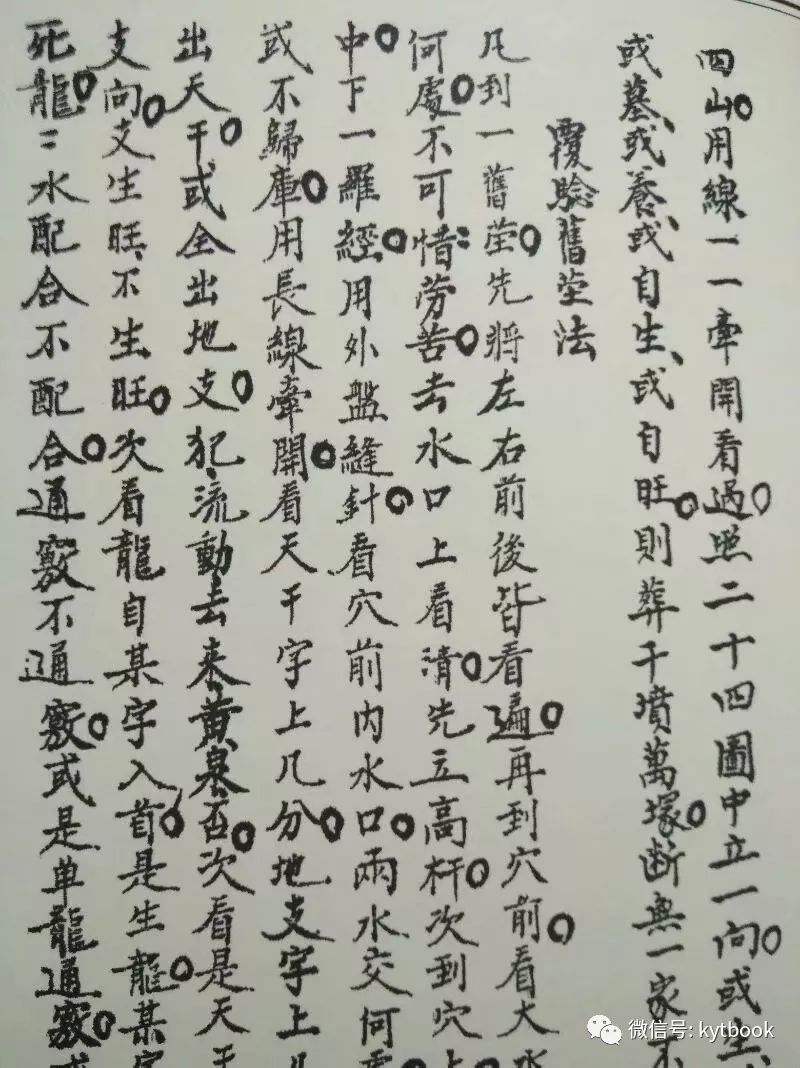 四山。用線一一牽開看過。照二十四圖中立一向。或生、
或墓、或養、或自生、或自旺。則葬千墳萬塚。断無一家不
覆騐舊塋法
凡到一舊塋。先將左右前後皆看遍。再到穴前。看大水
何處。不可惜勞苦。去水口上看清。先立高杆。次到穴上
中。下一羅經。用外盤縫針。看穴前內水口。兩水交何
或不歸庫。用長線牽開。看天干字上几分。地支字上几
出天干。或全出地支。犯、流動去来、黄泉否。次看是天干
支向。支生旺、不生旺。次看龍自某字入首。是生龍。某字
死龍。二水配合不配合。通竅不通竅。或是单龍通竅。或
微信号: kytbook